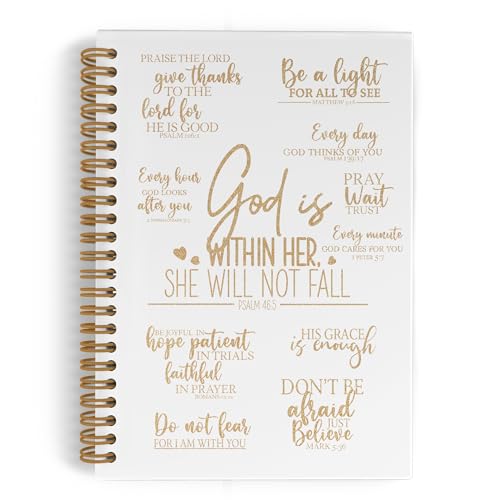 PRAISE THE LORD
give thanks
TO THE
lord for
HE IS GOOD
PSALM 106:1
Be a light
FOR ALL TO SEE
MATTHEW 5:16
Every day
GOD THINKS OF YOU
PSALM 139:17
Every hour
GOD LOOKS
after you
PRAY
Wait
TRUST
Every minute
GOD CARES FOR YOU
1 PETER 5:7
God is
WITHIN HER,
SHE WILL NOT FALL
PSALM 46:5
BE JOYFUL IN
hope patient
IN TRIALS
faithful
IN PRAYER
ROMANS 12:12
HIS GRACE
is enough
Do not fear
FOR I AM WITH YOU
DON'T BE
afraid
JUST
Believe
MARK 5:36